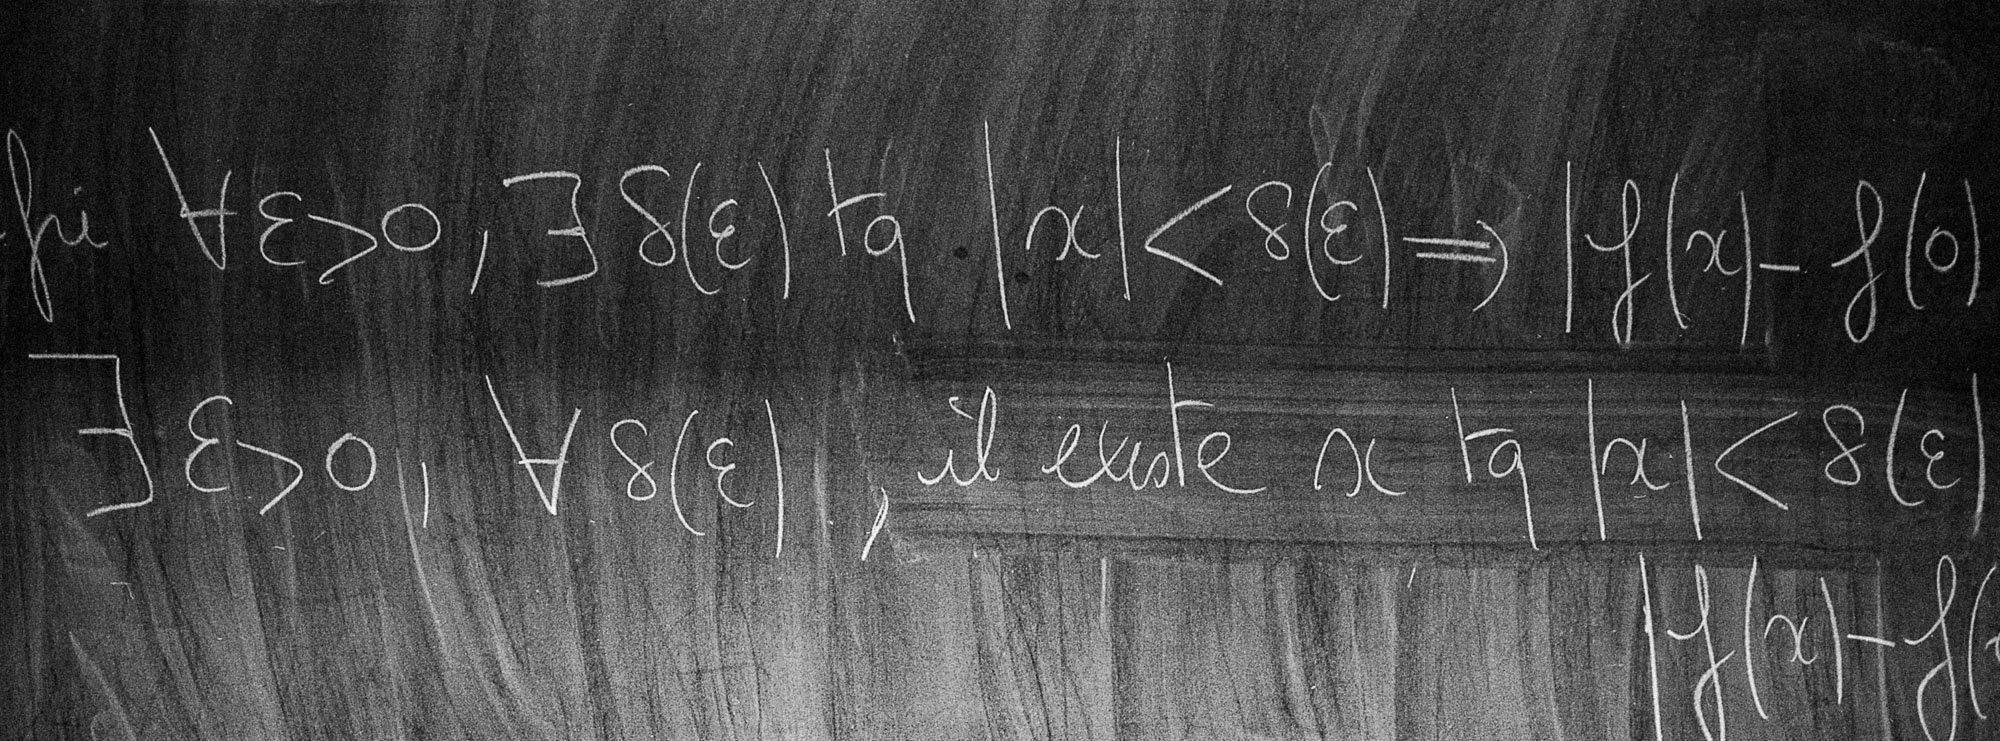 ∀ε>0, ∃ δ(ε) tq |x| < δ(ε) ⟹ |f(x) - f(0)
∃ ε>0, ∀ δ(ε), il existe x tq |x| < δ(ε)
|f(x) - f(